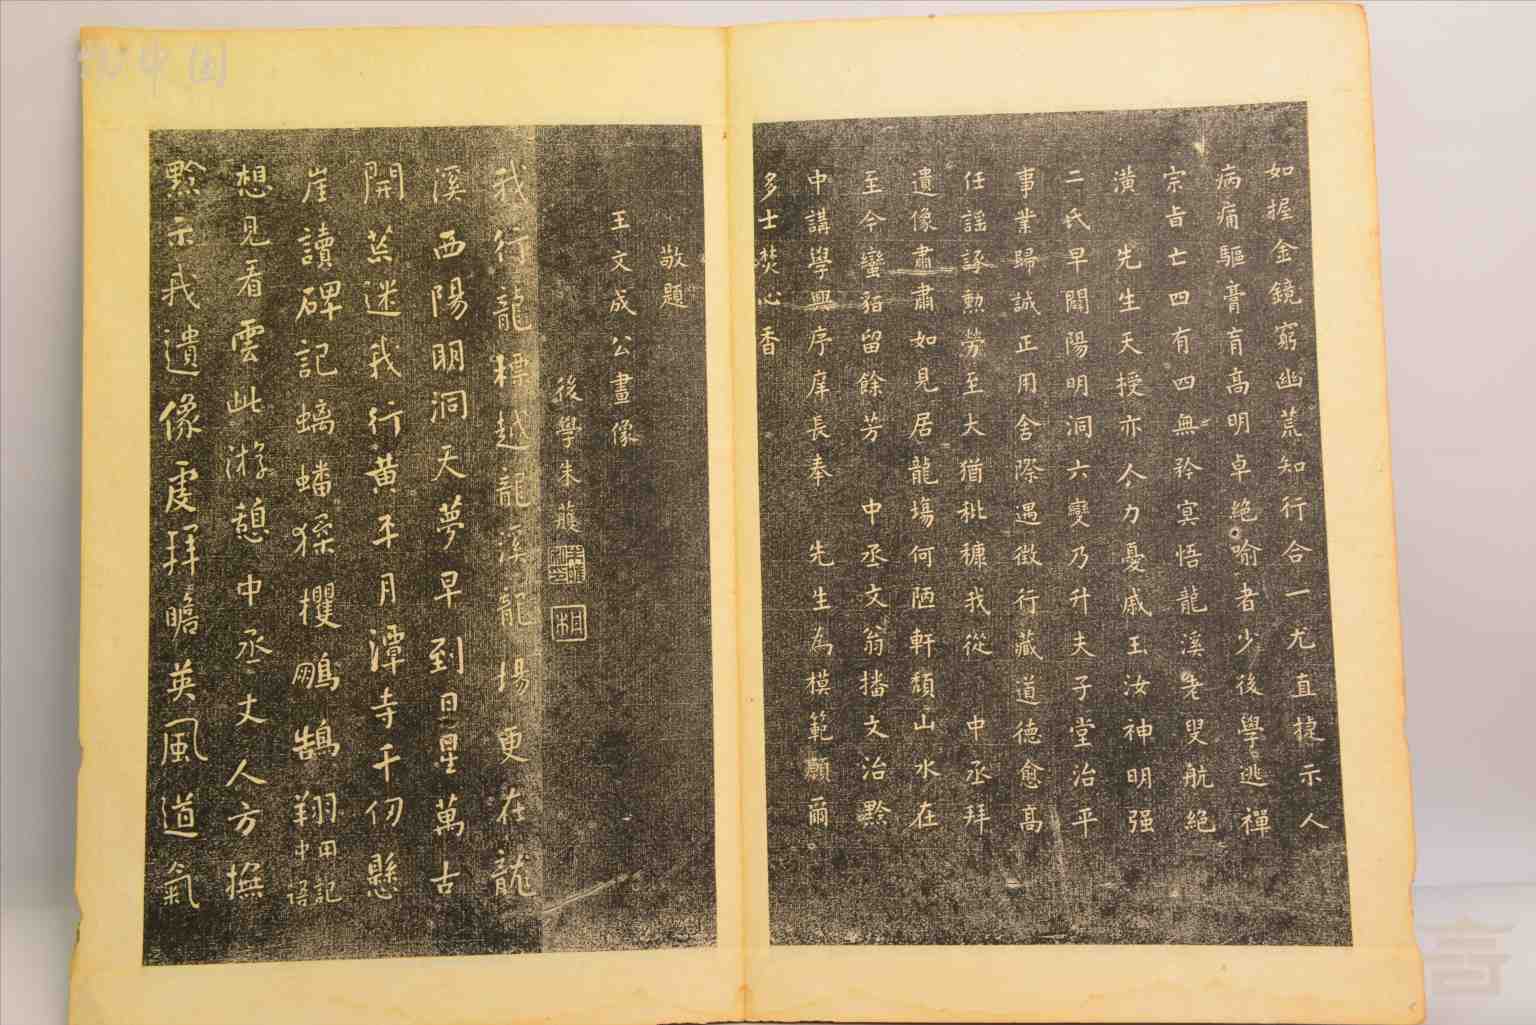 如握金鏡窮幽荒知行合一尤直捷示人
病痛驅膏肓高明卓絶喻者少後學逃禪
宗旨亡四有四無矜冥悟龍溪老叟航絶
潢　先生天授亦今力憂戚玉汝神明强
二氏早闢陽明洞六變乃升夫子堂治平
事業歸誠正用舍際遇徵行藏道德愈高
任謡諑勲勞至大猶秕穅我從　中丞拜
遺像肅肅如見居龍場何陋軒頽山水在
至今蠻貊留餘芳　中丞文翁播文治黔
中講學興序庠長奉　先生為模範願爾
多士焚心香
敬題
王文成公畫像
後學朱
我行龍標越龍溪龍場更在龍
溪西陽明洞天夢早到日星萬古
開荒迷我行黄平月潭寺千仞懸
崖讀碑記螭蟠猱攫鵰鵠翔用記中語
想見看雲此游憩中丞丈人方撫
黔示我遺像虔拜瞻英風道氣
中国